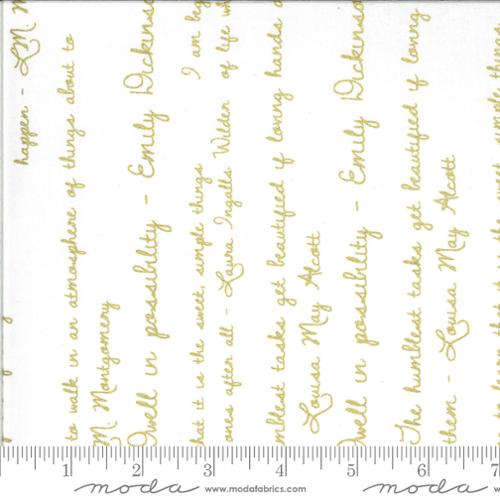 happen - L.M. M
to walk in an atmosphere of things about to
M. Montgomery
Dwell in possibility - Emily Dickinson
I am beg
hat it is the sweet, simple things
of life wh
ones after all - Laura Ingalls Wilder
mblest tasks get beautified if loving hands
Louisa May Alcott
Dwell in possibility - Emily Dickinson
The humblest tasks get beautified if loving
them - Louisa May Alcott
1 2 3 4 5 6 7
moda www.modafabrics.com moda